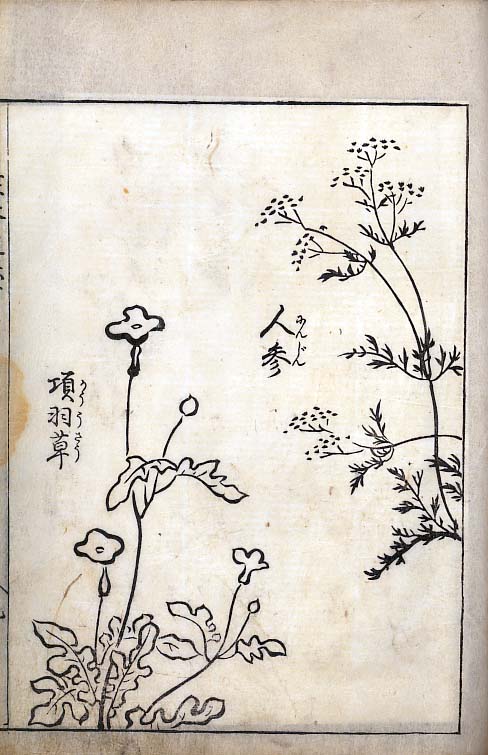 人参
にんじん
項羽草
かううさう